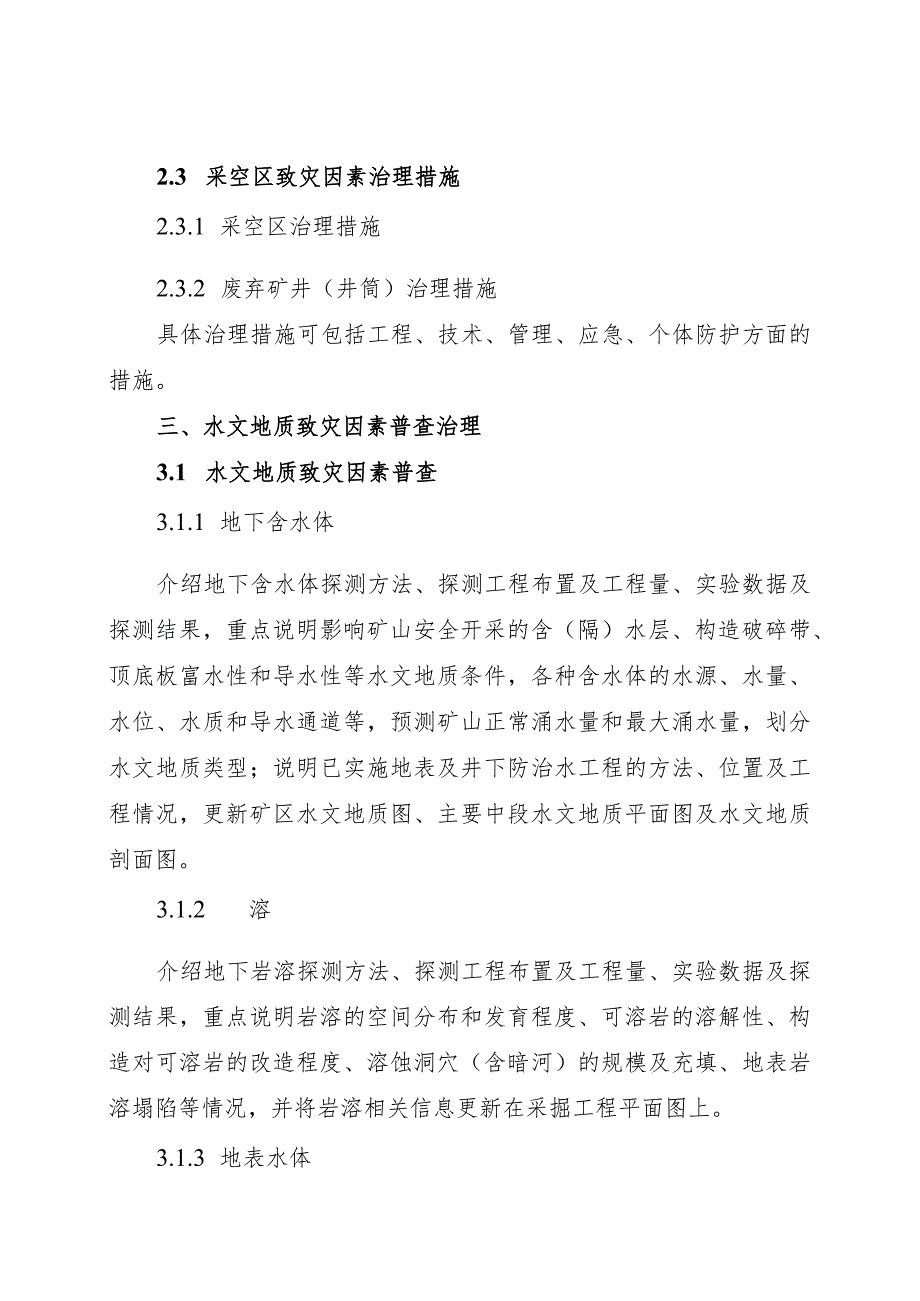 2.3 采空区致灾因素治理措施
2.3.1 采空区治理措施
2.3.2 废弃矿井（井筒）治理措施
具体治理措施可包括工程、技术、管理、应急、个体防护方面的
措施。
三、水文地质致灾因素普查治理
3.1 水文地质致灾因素普查
3.1.1 地下含水体
介绍地下含水体探测方法、探测工程布置及工程量、实验数据及
探测结果，重点说明影响矿山安全开采的含（隔）水层、构造破碎带、
顶底板富水性和导水性等水文地质条件，各种含水体的水源、水量、
水位、水质和导水通道等，预测矿山正常涌水量和最大涌水量，划分
水文地质类型；说明已实施地表及井下防治水工程的方法、位置及工
程情况，更新矿区水文地质图、主要中段水文地质平面图及水文地质
剖面图。
3.1.2 溶
介绍地下岩溶探测方法、探测工程布置及工程量、实验数据及探
测结果，重点说明岩溶的空间分布和发育程度、可溶岩的溶解性、构
造对可溶岩的改造程度、溶蚀洞穴（含暗河）的规模及充填、地表岩
溶塌陷等情况，并将岩溶相关信息更新在采掘工程平面图上。
3.1.3 地表水体